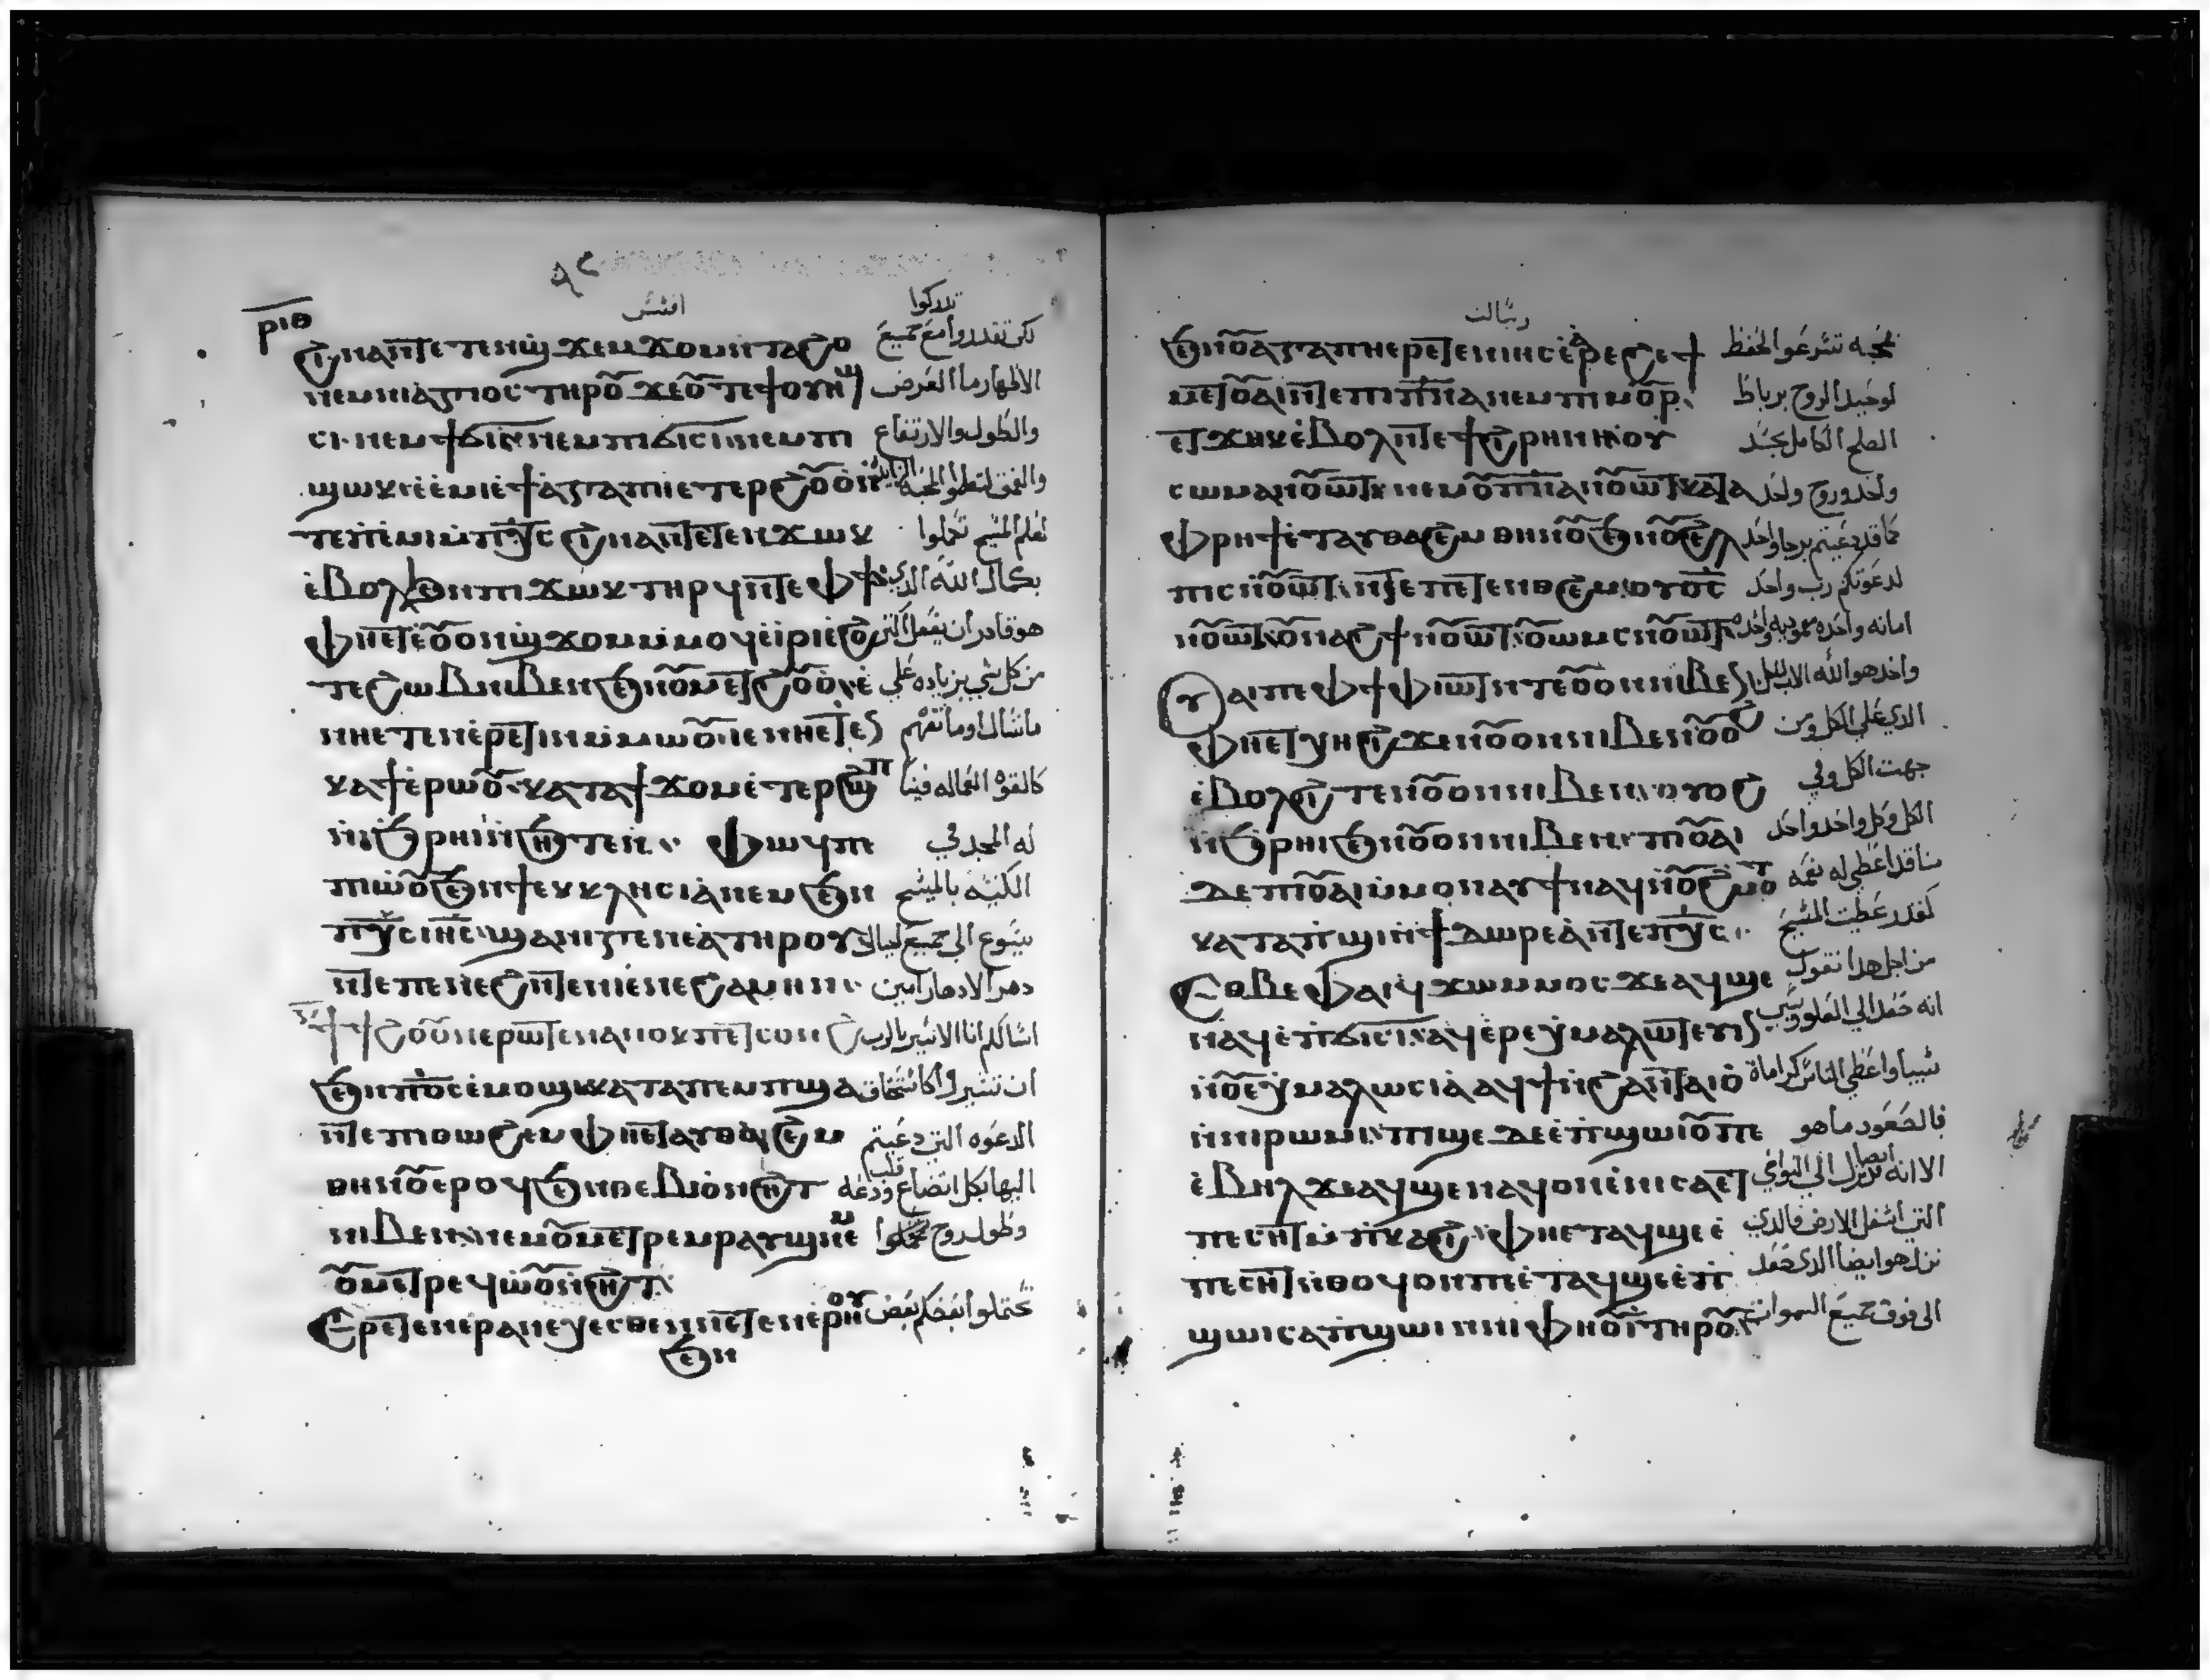 ٩٢
افسس
تدركوا
ⲣⲓⲑ
ϩⲓⲛⲁⲛⲧⲉⲧⲉⲛϣϫⲉⲙϫⲟⲙⲛⲧⲁϩⲟ لكى تقدروا مع جميع
ⲛⲉⲙⲛⲓⲁⲅⲓⲟⲥⲧⲏⲣⲟⲩϫⲉⲟⲩⲧⲉϯⲟⲩⲏϣ الاطهار ما العرض
ⲥⲓ·ⲛⲉⲙϯϭⲓⲏⲛⲉⲙⲡϭⲓⲥⲓⲛⲉⲙⲡⲓ والطول والارتفاع
ϣⲱⲕⲉⲉⲙⲓⲉϯⲁⲅⲁⲡⲏⲉⲧⲉⲣϩⲟⲩⲟ والعمق لتعلموا المحبه
ⲧⲉⲡⲉⲙⲓⲙⲡⲭⲥϩⲓⲛⲁⲛⲧⲉⲧⲉⲛϫⲱⲕ لعلم المسيح تكملوا
ⲉⲃⲟⲗϧⲉⲛⲡⲓϫⲱⲕⲧⲏⲣϥⲛⲧⲉⲫϯ بكمال الله الذي
ⲫⲏⲉⲧⲉⲟⲩⲟⲛϣϫⲟⲙⲙⲙⲟϥⲉⲓⲣⲓⲉϩⲟ هو قادر ان يفعل اكتر
ⲧⲉϩⲱⲃⲛⲓⲃⲉⲛϧⲉⲛⲟⲩⲙⲉⲧϩⲟⲩⲟ·ⲉ من كل شي بزياده علي
ⲛⲏⲉⲧⲉⲛⲉⲣⲉⲧⲓⲛⲙⲙⲱⲟⲩⲓⲉⲛⲏⲉⲧⲉ ما نسال او ما نفهم
ⲕⲁϯⲉⲣⲱⲟⲩ·ⲕⲁⲧⲁϯϫⲟⲙⲉⲧⲉⲣϩⲱⲡ كالقوه الفعاله فينا
ⲛϧⲣⲏⲓⲛϧⲏⲧⲉⲛ·ⲫⲱϥⲡⲉ له المجد في
ⲡⲓⲱⲟⲩϧⲉⲛϯⲉⲕⲕⲗⲏⲥⲓⲁⲛⲉⲙϧⲉⲛ الكنيسه بالمسيح
ⲡⲭⲥⲓⲏⲥ·ϣⲁⲛⲓⲅⲉⲛⲉⲁⲧⲏⲣⲟⲩ يسوع الى جميع اجيال
ⲛⲧⲉⲡⲉⲛⲉϩⲛⲧⲉⲛⲓⲉⲛⲉϩⲁⲙⲏⲛ· دهر الادهار امين
ϯϯϩⲟⲟⲩⲛⲉⲣⲱⲧⲉⲛⲁⲛⲟⲕⲡⲉⲧⲥⲟⲛϩ اسالكم انا الاسير بالرب
ϧⲉⲛⲡⲟⲥⲉⲙⲟϣⲓⲕⲁⲧⲁⲡⲉⲙⲡϣⲁ ان تسيروا كاستحقاق
ⲛⲧⲉⲡⲓⲑⲱϩⲉⲙⲫⲏⲉⲧⲁⲩⲑⲁϩⲉⲙ الدعوه التي دعيتم
ⲑⲏⲛⲟⲩⲉⲣⲟϥϧⲉⲛⲑⲉⲃⲓⲟⲛϩⲏⲧ اليها بكل اتضاع قلب ودعه
ⲛⲓⲃⲉⲛⲛⲉⲙⲟⲩⲙⲉⲧⲣⲉⲙⲣⲁⲩϣⲛⲉⲙ وطول روح تحملوا
ⲟⲩⲙⲉⲧⲣⲉϥⲱⲟⲩⲛϩⲏⲧ
ⲉⲣⲉⲧⲉⲛⲉⲣⲁⲛⲉⲭⲉⲥⲑⲉⲛⲛⲉⲧⲉⲛⲉⲣⲏⲟⲩ تحتملوا بعضكم بعض
ϧⲉⲛ
رسالت
ϧⲉⲛⲟⲩⲁⲅⲁⲡⲏⲉⲣⲉⲧⲉⲛⲓⲏⲥⲉⲁⲣⲉϩⲉϯ بمحبه تسرعوا لحفظ
ⲙⲉⲧⲟⲩⲁⲓⲛⲧⲉⲡⲓⲡⲛⲁⲛⲉⲙⲡⲓⲙⲟⲩⲣ لوحيد الروح برباط
ⲉⲧϫⲏⲕⲉⲃⲟⲗⲛⲧⲉϯϩⲓⲣⲏⲛⲏⲟⲩ الصلح الكامل بجسد
ⲥⲱⲙⲁⲛⲟⲩⲱⲧⲛⲉⲙⲟⲩⲡⲛⲁⲛⲟⲩⲱⲧⲕⲁⲧⲁ واحد وروح واحد
ⲫⲣⲏϯⲉⲧⲁⲩⲑⲁϩⲉⲙⲑⲏⲛⲟⲩϧⲉⲛⲟⲩϩⲉⲗ كما قد دعيتم برجا واحد
ⲡⲓⲥⲛⲟⲩⲱⲧ·ⲛⲧⲉⲡⲉⲧⲉⲛⲑⲱϩⲉⲙ·ⲟⲩⲟⲥ لدعوتكم رب واحد
ⲛⲟⲩⲱⲧ·ⲟⲩⲛⲁϩϯⲛⲟⲩⲱⲧ·ⲟⲩⲱⲙⲥⲛⲟⲩⲱⲧ امانه واحده معموديه واحده
ⲟⲩⲁⲓⲡⲉⲫϯⲫⲓⲱⲧⲛⲧⲉⲟⲩⲟⲛⲛⲓⲃⲉⲛ واحد هو الله الاب للكل
ⲫⲏⲉⲧⲭⲏϩⲓϫⲉⲛⲟⲩⲟⲛⲛⲓⲃⲉⲛⲟⲩⲟϩ الذي علي الكل ومن
ⲉⲃⲟⲗϩⲓⲧⲉⲛⲟⲩⲟⲛⲛⲓⲃⲉⲛ·ⲟⲩⲟϩ جهت الكل وفي
ⲛϧⲣⲏⲓϧⲉⲛⲟⲩⲟⲛⲛⲓⲃⲉⲛ·ⲡⲓⲟⲩⲁⲓ الكل وكل واحد واحد
ⲇⲉⲡⲓⲟⲩⲁⲓⲙⲙⲟⲛⲁⲩϯⲛⲁϥⲛⲟⲩϩⲙⲟⲧ منا قد اعطي له نعمه
ⲕⲁⲧⲁⲡϣⲓⲛϯⲇⲱⲣⲉⲁⲛⲧⲉⲡⲭⲥ· كقدر عطيت المسيح
ⲉⲑⲃⲉⲫⲁⲓϥϫⲱⲙⲙⲟⲥϫⲉⲁϥϣⲉ من اجل هذا نقول
ⲛⲁϥⲉⲡϭⲓⲥⲓ·ⲁϥⲉⲣⲉⲭⲙⲁⲗⲱⲧⲉⲩⲓⲛ انه صعد الي العلو وسبي
ⲛⲟⲩⲉⲭⲙⲁⲗⲱⲥⲓⲁⲁϥϯⲛϩⲁⲛⲧⲁⲓⲟ سبيا واعطي الناس كراماة
ⲛⲛⲓⲣⲱⲙⲓ·ⲡⲓϣⲉⲇⲉⲉⲡϣⲱⲓⲟⲩⲡⲉ فالصعود ما هو
ⲉⲃⲏⲗϫⲉⲁϥϣⲉⲛⲁϥⲟⲛⲉⲛⲓⲥⲁⲉⲧ الا انه ايضا نزل الي النواحي
ⲡⲉⲥⲏⲧⲙⲡⲕⲁϩⲓ·ⲫⲏⲉⲧⲁϥϣⲉⲉ التي اسفل الارض فالذي
ⲡⲉⲥⲏⲧⲛⲑⲟϥⲟⲛⲡⲉⲉⲧⲁϥϣⲉⲉⲡ نزل هو ايضا الذي صعد
ϣⲱⲓⲥⲁⲡϣⲱⲓⲛⲛⲓⲫⲏⲟⲩⲓⲧⲏⲣⲟⲩ الى فوق جميع السموات